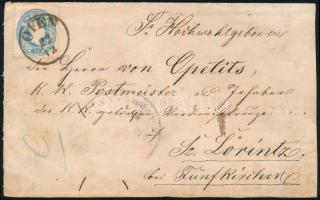 OFEN
Sr Hochwohlgeboren
den Herrn von Opetits,
K. K. Postmeister Inhaber
des KK goldenen Verdienstkreuzes
Sz. Lörintz
bei Fünfkirchen